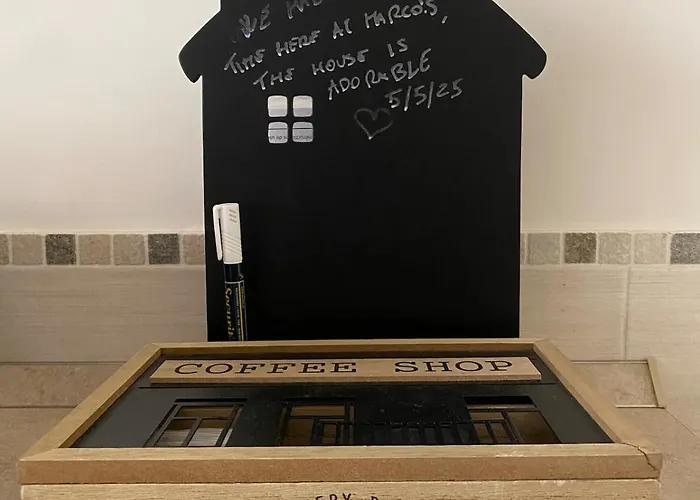 WE HAD
TIME HERE AT MARCO'S,
THE HOUSE IS
ADORABLE
5/5/25
Securit
COFFEE SHOP